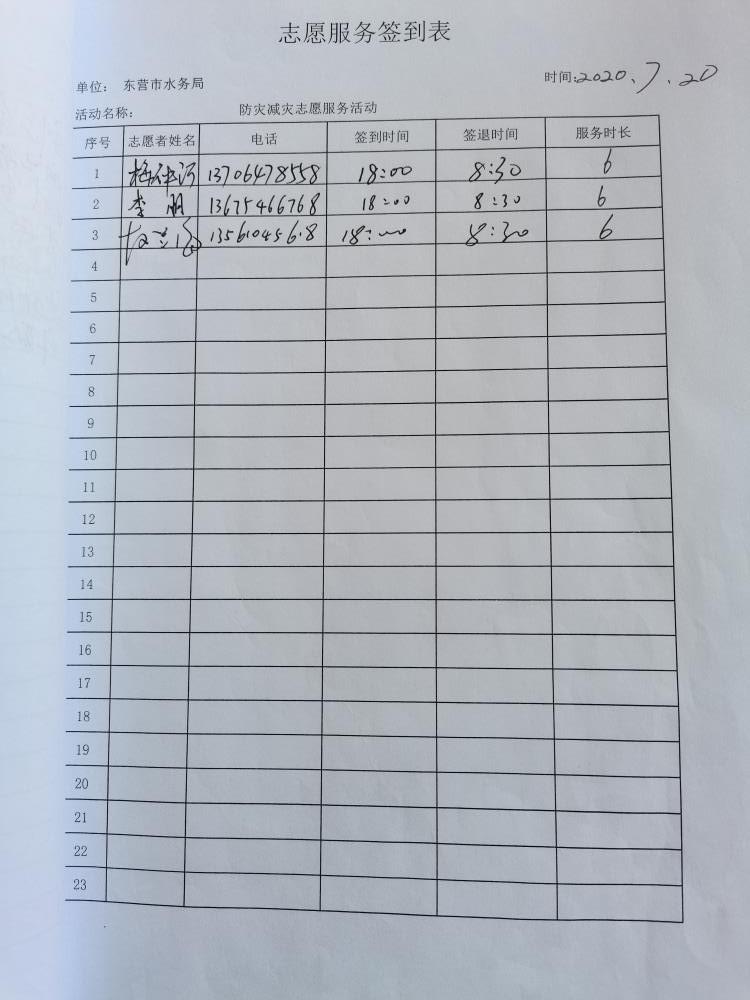 志愿服务签到表
单位： 东营市水务局 时间:2020.7.20
活动名称： 防灾减灾志愿服务活动
序号 志愿者姓名 电话 签到时间 签退时间 服务时长
1 13706478558 18:00 8:30 6
2 李 13675466768 18:00 8:30 6
3 18:00 8:30 6
4
5
6
7
8
9
10
11
12
13
14
15
16
17
18
19
20
21
22
23